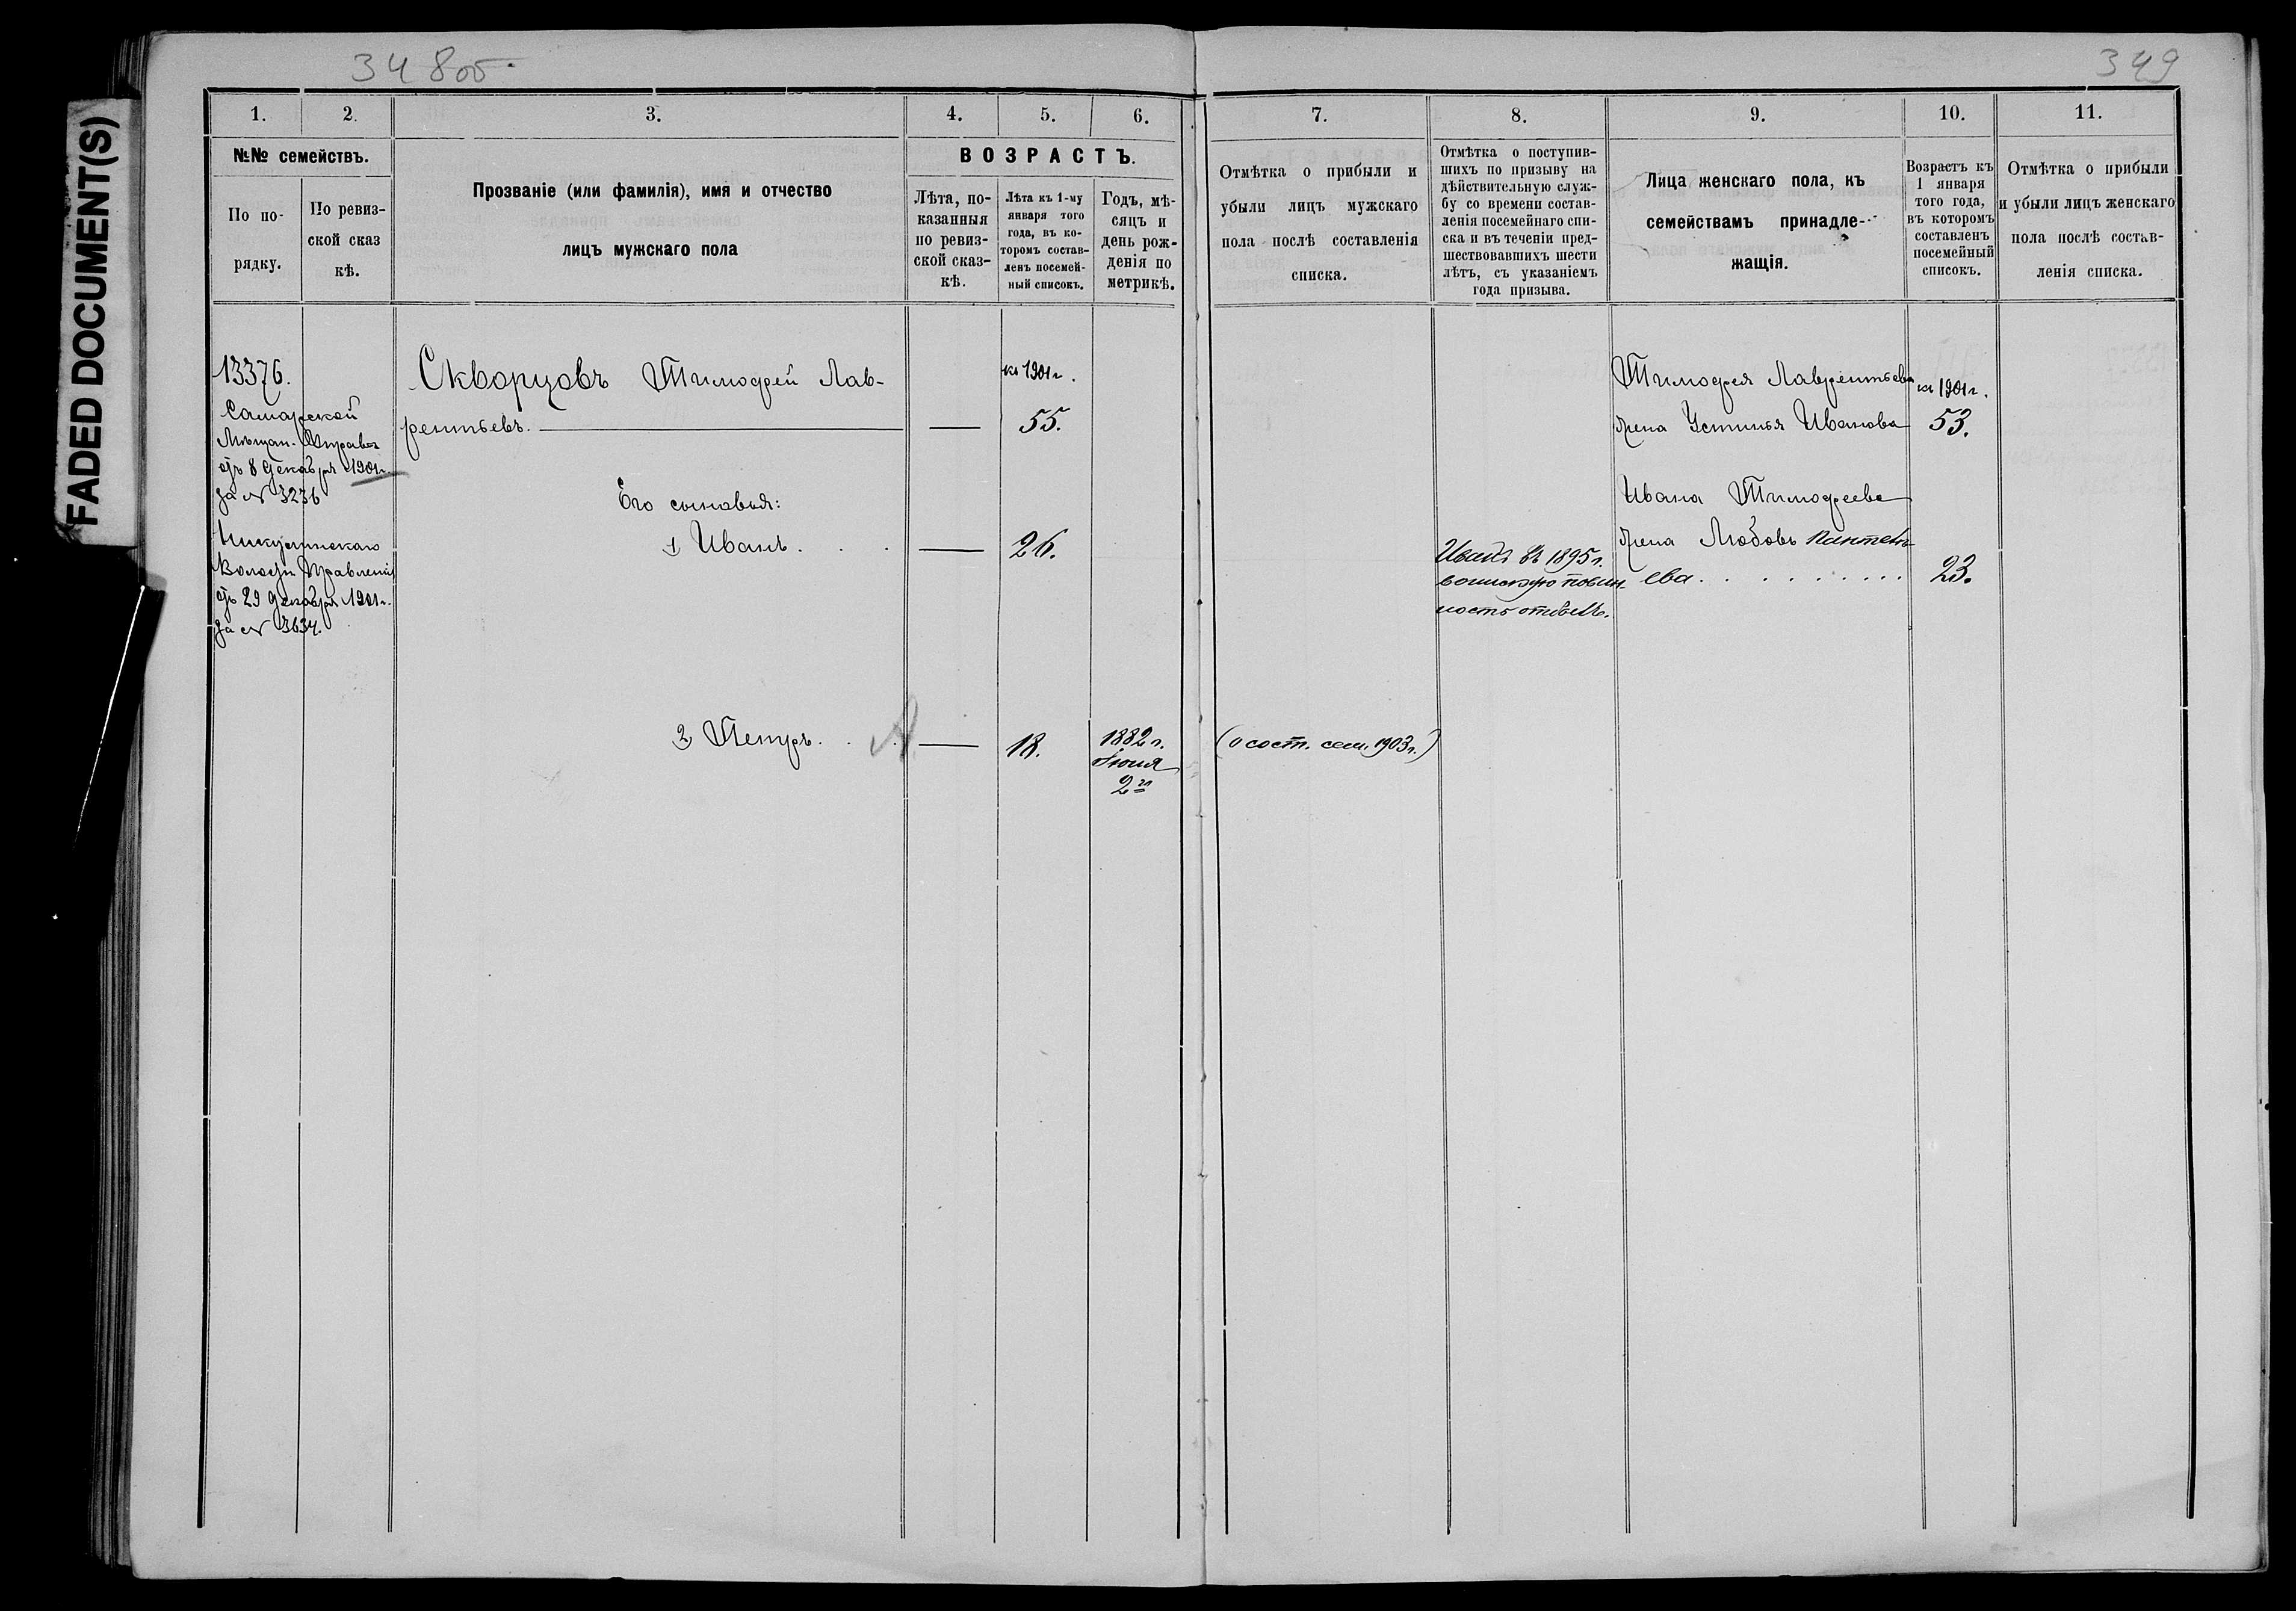 FADED DOCUMENT(S)
348об.
349
1.
2.
3.
4.
5.
6.
7.
8.
9.
10.
11.
№№ семействъ.
По по-
рядку.
По ревиз-
ской сказ
кѣ.
Прозваніе (или фамилія), имя и отчество
лицъ мужскаго пола
ВОЗРАСТЪ.
Лѣта, по-
казанныя
по ревиз-
ской сказ-
кѣ.
Лѣта къ 1-му
января того
года, въ ко-
торомъ состав-
ленъ посемей-
ный списокъ.
Годъ, мѣ-
сяцъ и
день рож-
денія по
метрикѣ.
Отмѣтка о прибыли и
убыли лицъ мужскаго
пола послѣ составленія
списка.
Отмѣтка о поступив-
шихъ по призыву на
дѣйствительную служ-
бу со времени состав-
ленія посемейнаго спи-
ска и въ теченіи пред-
шествовавшихъ шести
лѣтъ, съ указаніемъ
года призыва.
Лица женскаго пола, къ
семействамъ принадле-
жащія.
Возрастъ къ
1 января
того года,
въ которомъ
составленъ
посемейный
списокъ.
Отмѣтка о прибыли
и убыли лицъ женскаго
пола послѣ состав-
ленія списка.
13376.
Самарской
Мѣщан. Управы
отъ 8 декабря 1901г.
за № 3236
Никулинскаго
Волостн Правленія
отъ 29 декабря 1901г.
за № 3634.
Скворцовъ Тимофей Лав-
рентьевъ.
Его сыновья:
1 Иванъ. . .
2 Петръ. . .
къ 1901г.
55.
26.
18.
1882г.
Іюня
2го
(о сост. сем. 1903г.)
Иванъ въ 1895г.
воинскую повин-
ность отбылъ.
Тимофея Лаврентьева
жена Устинья Иванова
Ивана Тимофеева
жена Любовь Пантел-
ева. . . . . . . . . .
къ 1901г.
53.
23.